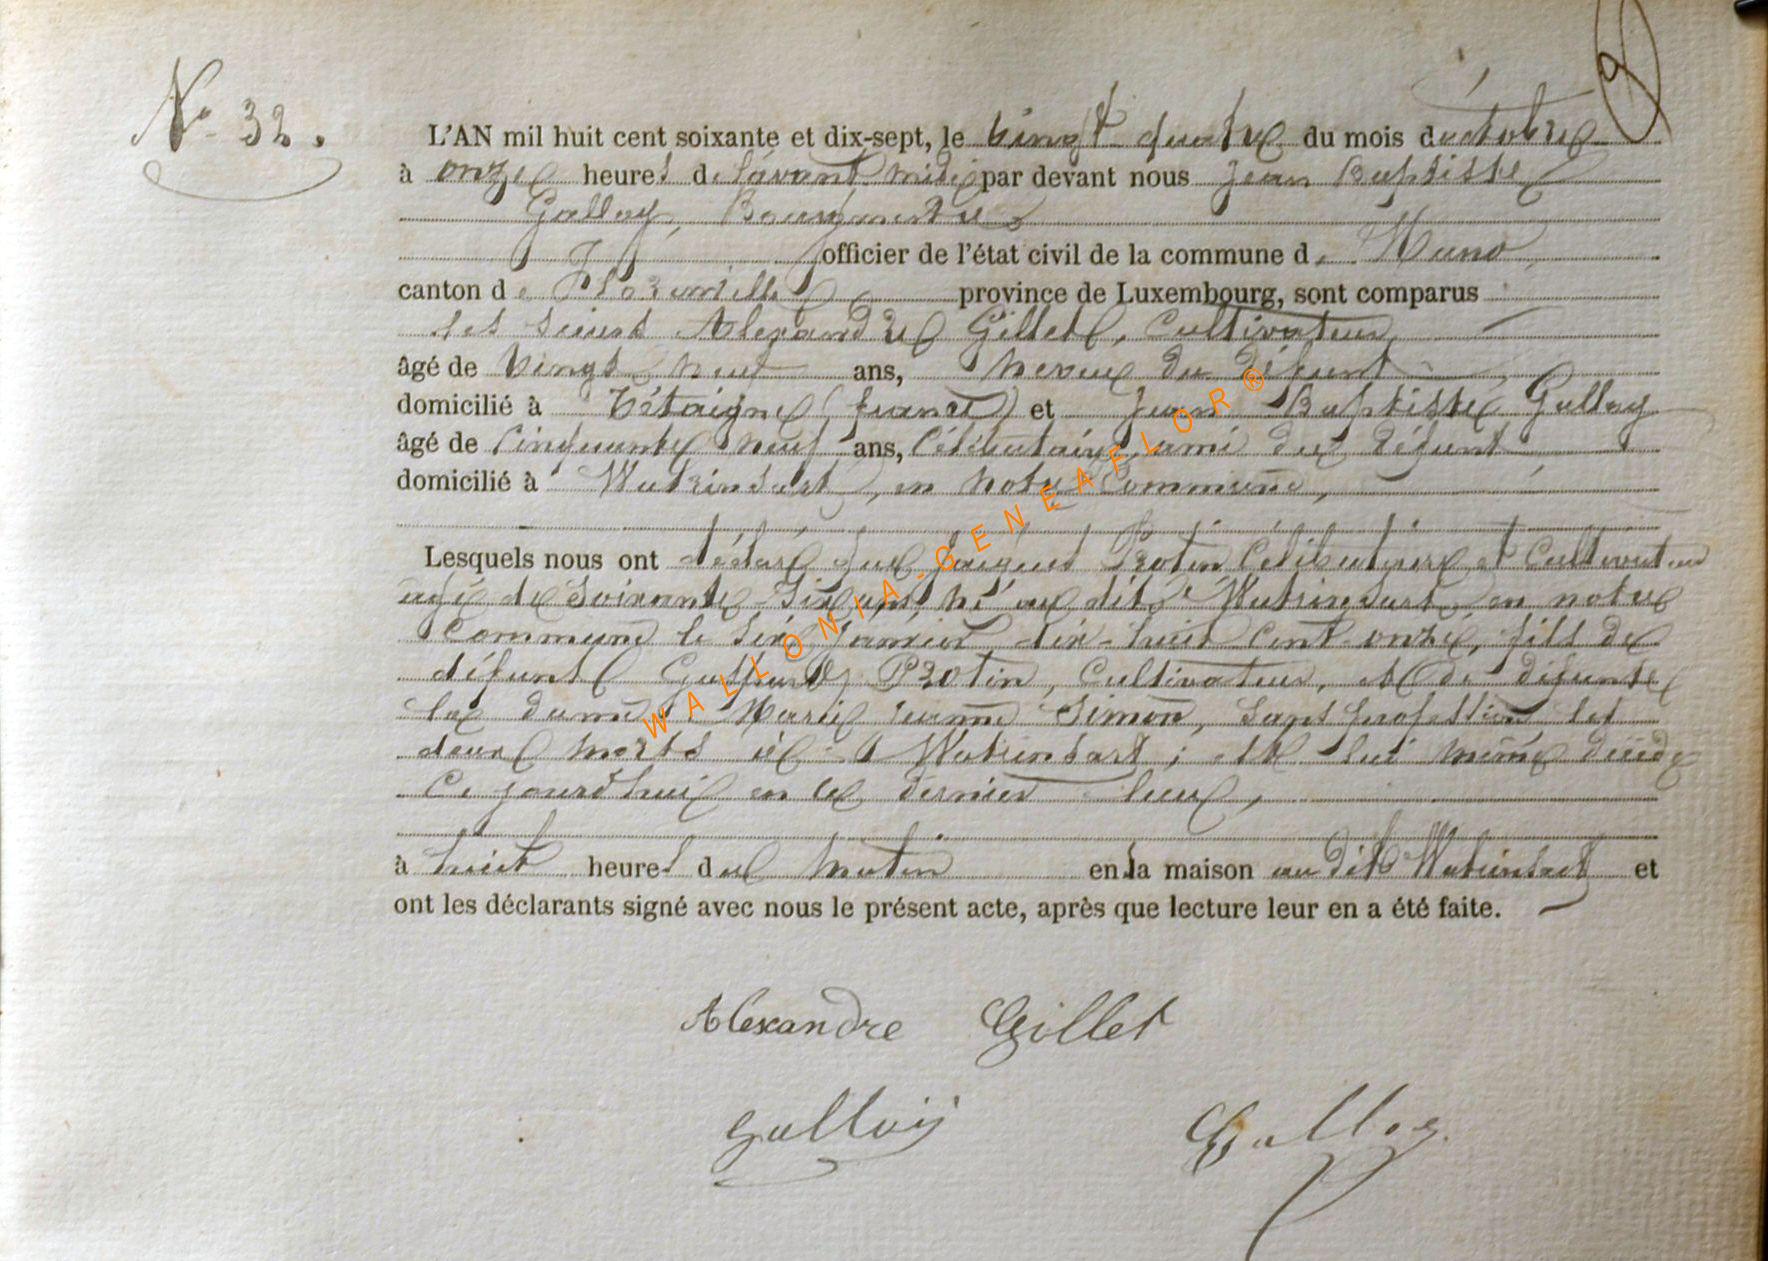 N° 32.
L'AN mil huit cent soixante et dix-sept, le vingt quatre du mois d'octobre
à onze heures de l'avant midi par devant nous Jean Baptiste
Galloy, Bourgmestre
officier de l'état civil de la commune de Muno,
canton de Florenville province de Luxembourg, sont comparus
les sieurs Alexandre Gillet, Cultivateur,
âgé de vingt neuf ans, neveu du défunt
domicilié à Tétaigne (france) et Jean Baptiste Galloy
âgé de Cinquante neuf ans, Célibataire, ami du défunt
domicilié à Watrinsart, en notre Commune,
Lesquels nous ont déclaré que Jacques Protin Célibataire et Cultivateur
âgé de Soixante-Six ans, né au dit Watrinsart, en notre
Commune le six Janvier dix-huit cent-onze, fils de
défunt Guspard Protin, Cultivateur, et de défunte
la dame Marie Jeanne Simon, sans profession les
deux morts à Watrinsart ; et lui même décédé
Ce jourd'hui en ce dernier lieu,
à huit heures du matin en la maison au dit Watrinsart et
ont les déclarants signé avec nous le présent acte, après que lecture leur en a été faite.
Alexandre Gillet
Galloy Galloy
WALLONIA-GENEAFLOR®